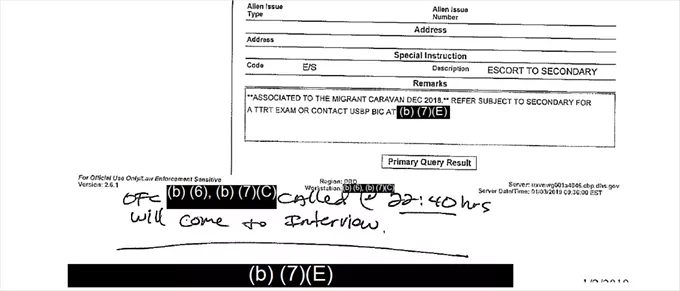 Alien Issue Type
Alien Issue Number
Address
Address
Special Instruction
Code E/S Description ESCORT TO SECONDARY
Remarks
**ASSOCIATED TO THE MIGRANT CARAVAN DEC 2018.** REFER SUBJECT TO SECONDARY FOR
A TTRT EXAM OR CONTACT USBP BIC AT (b) (7)(E)
Primary Query Result
For Official Use Only/Law Enforcement Sensitive
Version: 2.6.1
Region: PRD
Workstation: (b) (6), (b) (7)(C)
Server:
Server Date/Time: 01/03/2019 09:36:00 EST
OFC (b) (6), (b) (7)(C) called @ 22:40 hrs
will come to Interview.
(b) (7)(E)